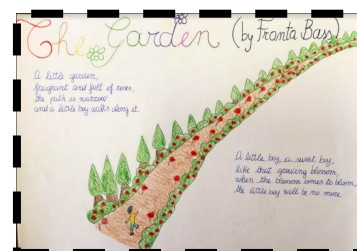 The Garden (by Franta Bass)
A little garden,
fragrant and full of roses,
the path is narrow
and a little boy walks along it.
A little boy, a sweet boy,
like that growing blossom,
when the blossom comes to bloom,
the little boy will be no more.